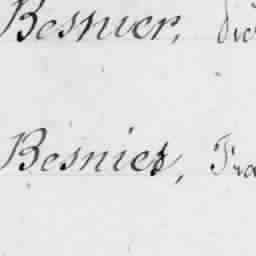 Besnier, Vic
Besnier, Fra